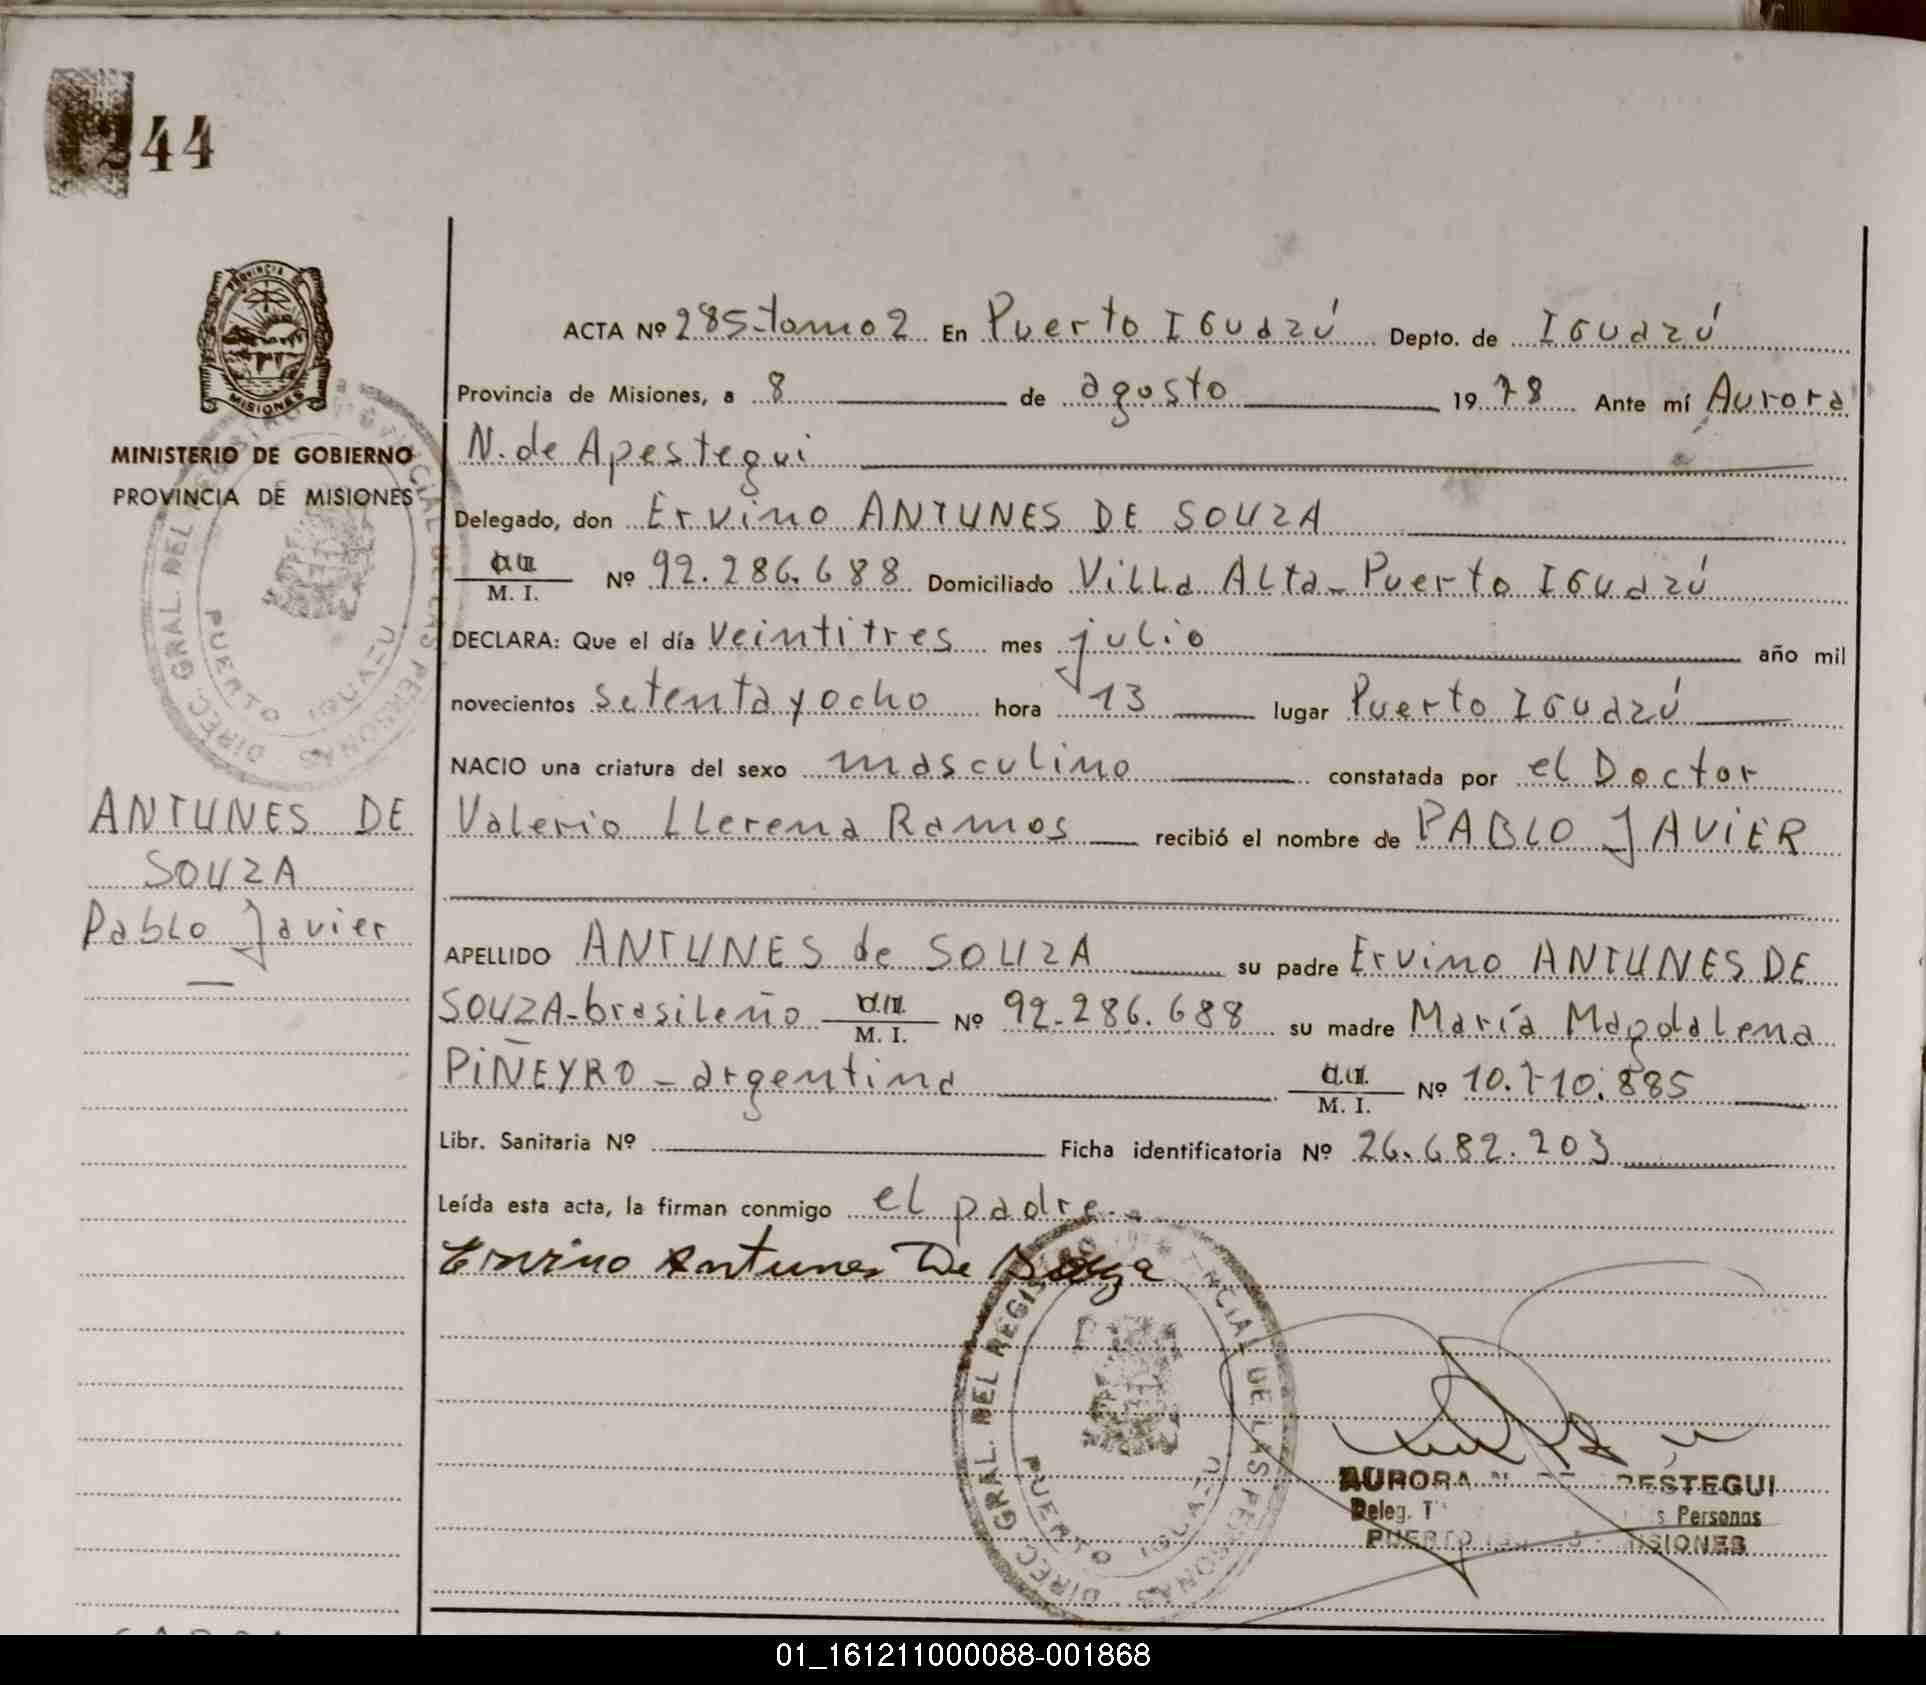 244
PROVINCIA DE
MISIONES
MINISTERIO DE GOBIERNO
PROVINCIA DE MISIONES
DIREC. GRAL. DEL DE LAS PERSONAS
PUERTO IGUAZU
ANTUNES DE
SOUZA
Pablo Javier
ACTA Nº 285-tomo 2 En Puerto IGUazú Depto. de IGUazú
Provincia de Misiones, a 8 de agosto 1978 Ante mí Aurora
N. de Apestegui
Delegado, don Ervino ANTUNES DE SOUZA
M. I. Nº 92.286.688 Domiciliado Villa Alta - Puerto IGUazú
DECLARA: Que el día veintitres mes julio año mil
novecientos setenta y ocho hora 13 lugar Puerto IGUazú
NACIO una criatura del sexo masculino constatada por el Doctor
Valerio Llerena Ramos recibió el nombre de PABLO JAVIER
APELLIDO ANTUNES de SOUZA su padre Ervino ANTUNES DE
SOUZA-brasileño M. I. Nº 92-286.688 su madre María Magdalena
PIÑEYRO - argentina M. I. Nº 10.710.885
Libr. Sanitaria Nº Ficha identificatoria Nº 26.682.203
Leída esta acta, la firman conmigo el padre.
Ervino Antunes De Souza
DIREC. GRAL. DEL REGISTRO PROVINCIAL DE LAS PERSONAS
PUERTO IGUAZU
AURORA
Deleg. Personas
PUERTO MISIONES
01_161211000088-001868